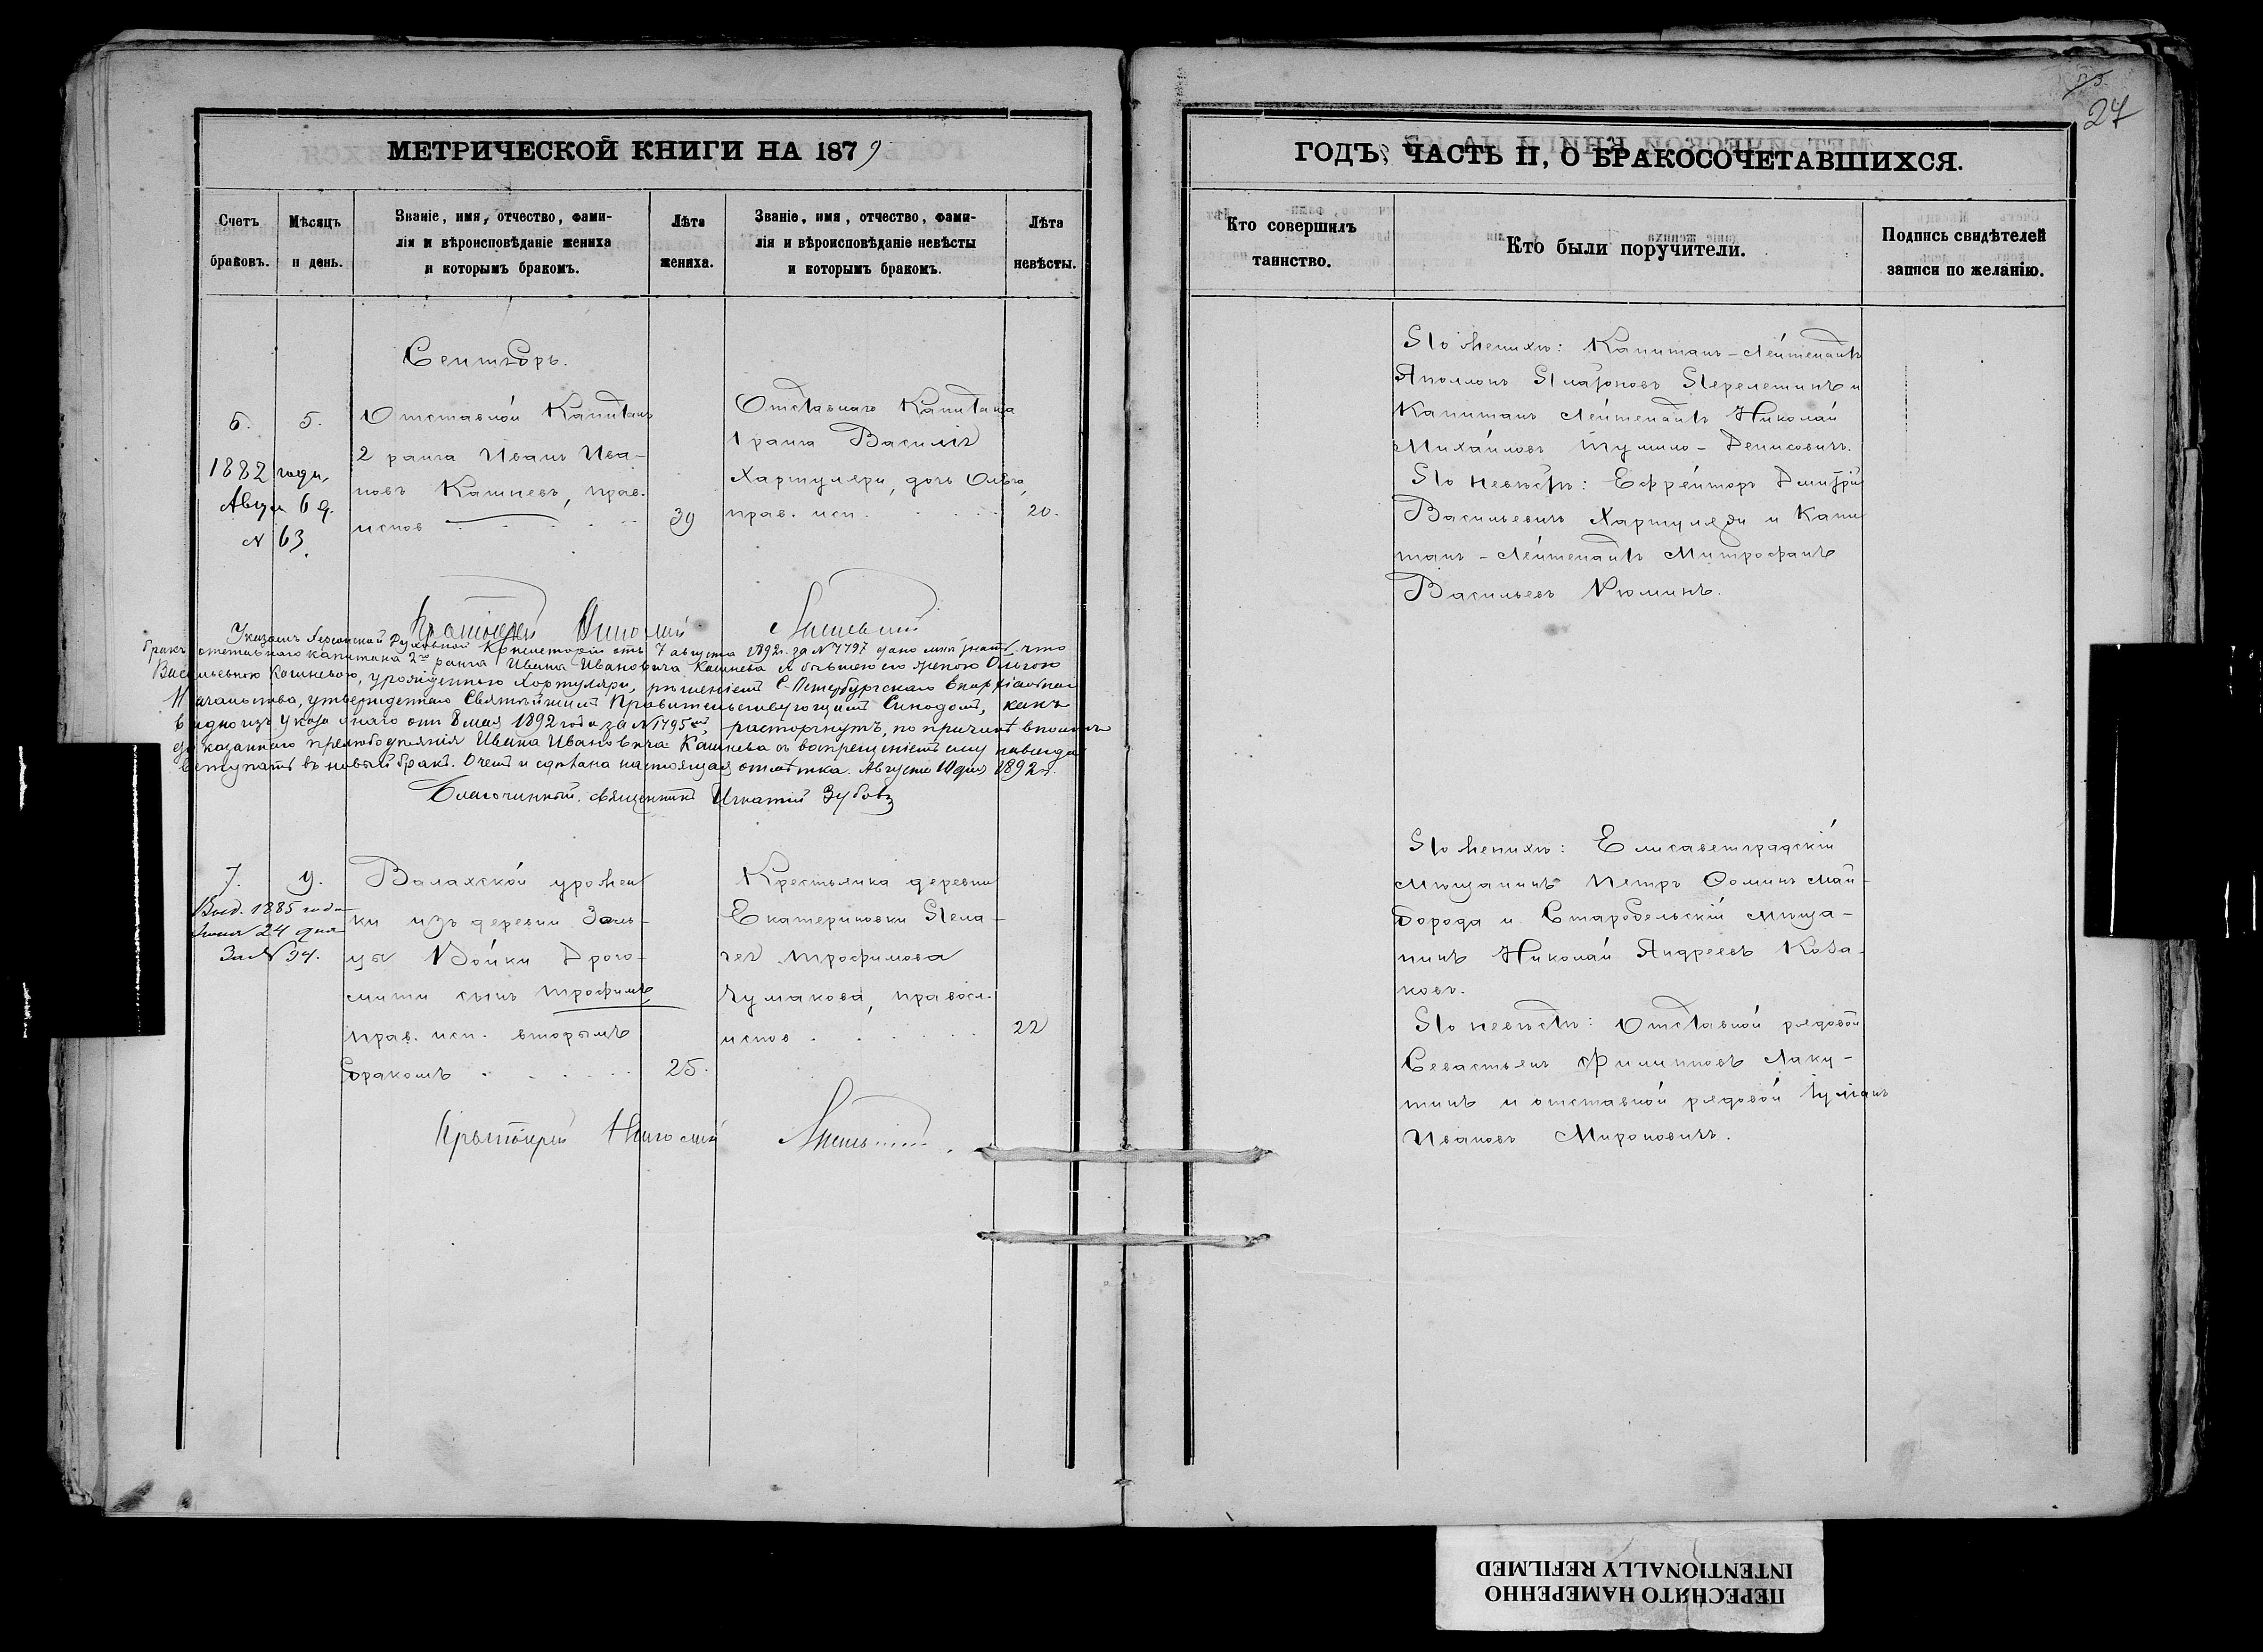 МЕТРИЧЕСКОЙ КНИГИ НА 1879
Счетъ браковъ.
Мѣсяцъ и день.
Званіе, имя, отчество, фами-
лія и вѣроисповѣданіе жениха
и которымъ бракомъ.
Лѣта
жениха.
Званіе, имя, отчество, фами-
лія и вѣроисповѣданіе невѣсты
и которымъ бракомъ.
Лѣта
невѣсты.
Сентябрь.
6. 5.
1882 года,
Авгус 6 д.
№ 63.
Отставной Капитанъ
2 ранга Иванъ Ива-
новъ Кашневъ, прав.
испов
39
Отставнаго Капитана
1 ранга Василія
Хартуляри, дочь Ольга,
прав. исп.
20.
Протоіерей
Указомъ Херсонской Духовной Консисторіи отъ 7 августа 1892 г. за № 7797 дано мнѣ знать, что
бракъ отставнаго капитана 2го ранга Ивана Ивановича Кашнева съ бывшею его женою Ольгою
Васильевною Кашневою, урожденною Хартуляри, рѣшеніемъ С.-Петербургскаго Епархіальнаго
Начальства, утвержденнаго Святѣйшимъ Правительствующимъ Синодомъ, какъ
видно изъ указа онаго отъ 8 мая 1892 года за № 1795, расторгнутъ, по причинѣ вполнѣ
доказаннаго прелюбодѣянія Ивана Ивановича Кашнева съ воспрещеніемъ ему навсегда
вступать въ новый бракъ. О чемъ и сдѣлана настоящая отмѣтка. Августа 10 дня 1892 г.
Благочинный, священникъ Игнатій Зубовъ
7. 9.
Выд. 1885 года
24 дня
За № 54.
Валахской урожен
ки изъ деревни
цы Войки Драго-
мити сынъ Трофимъ
прав. исп. вторымъ
бракомъ
25.
Крестьянка деревни
Екатериновки Пела-
гея Трофимова
Чумакова, правосл.
испов
22
Протоіерей
27
ГОДЪ, ЧАСТЬ II, О БРАКОСОЧЕТАВШИХСЯ.
Кто совершилъ
таинство.
Кто были поручители.
Подпись свидѣтелей
записи по желанію.
По женихѣ: Капитанъ-Лейтенантъ
Аполлонъ Платоновъ Перелешинъ и
Капитанъ Лейтенантъ Николай
Михайловъ Тумило-Денисовичъ.
По невѣстѣ: Ефрейторъ Дмитрій
Васильевичъ Хартуляри и Капи
танъ-Лейтенантъ Митрофанъ
Васильевъ Рюминъ.
По женихѣ: Елисаветградскій
мѣщанинъ Петръ Фоминъ Май-
борода и Старобельскій мѣща-
нинъ Николай Андреевъ Коза-
ковъ.
По невѣстѣ: Отставной рядовой
Севастьянъ Филипповъ Лаку-
тинъ и отставной рядовой Іуліанъ
Ивановъ Мироновичъ.
ПЕРЕСНЯТО НАМЕРЕННО
INTENTIONALLY REFILMED